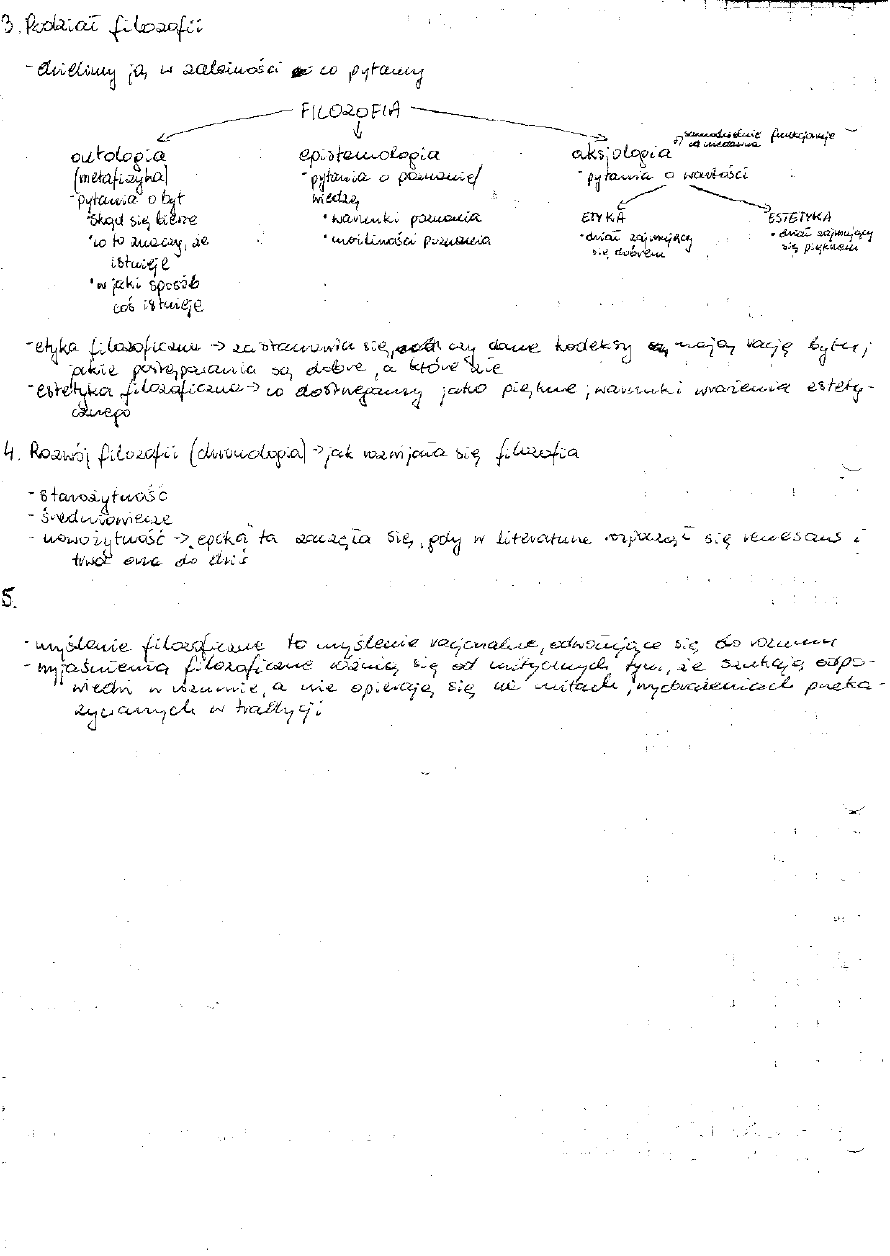 3. Podział filozofii
- dzielimy ją w zależności o co pytamy
FILOZOFIA
ontologia
(metafizyka)
- pytania o byt
• skąd się bierze
• co to znaczy, że
istnieje
• w jaki sposób
coś istnieje
epistemologia
- pytania o poznanie/
wiedzę
• warunki poznania
• możliwości poznania
aksjologia → samodzielnie funkcjonuje
od niedawna
- pytania o wartości
ETYKA
• dział zajmujący
się dobrem
ESTETYKA
• dział zajmujący
się pięknem
- etyka filozoficzna → zastanawia się, czy dane kodeksy mają rację bytu;
jakie postępowania są dobre, a które nie
- estetyka filozoficzna → co dostrzegamy jako piękne; warunki wrażenia estety-
cznego
4. Rozwój filozofii (chronologia) → jak rozwijała się filozofia
- starożytność
- średniowiecze
- nowożytność → epoka ta zaczęła się, gdy w literaturze rozpoczął się renesans i
trwa ona do dziś
5.
- myślenie filozoficzne to myślenie racjonalne, odwołujące się do rozumu
- wyjaśnienia filozoficzne różnią się od mitycznych tym, że szukają odpo-
wiedzi w rozumie, a nie opierają się na mitach, wyobrażeniach przeka-
zywanych w tradycji